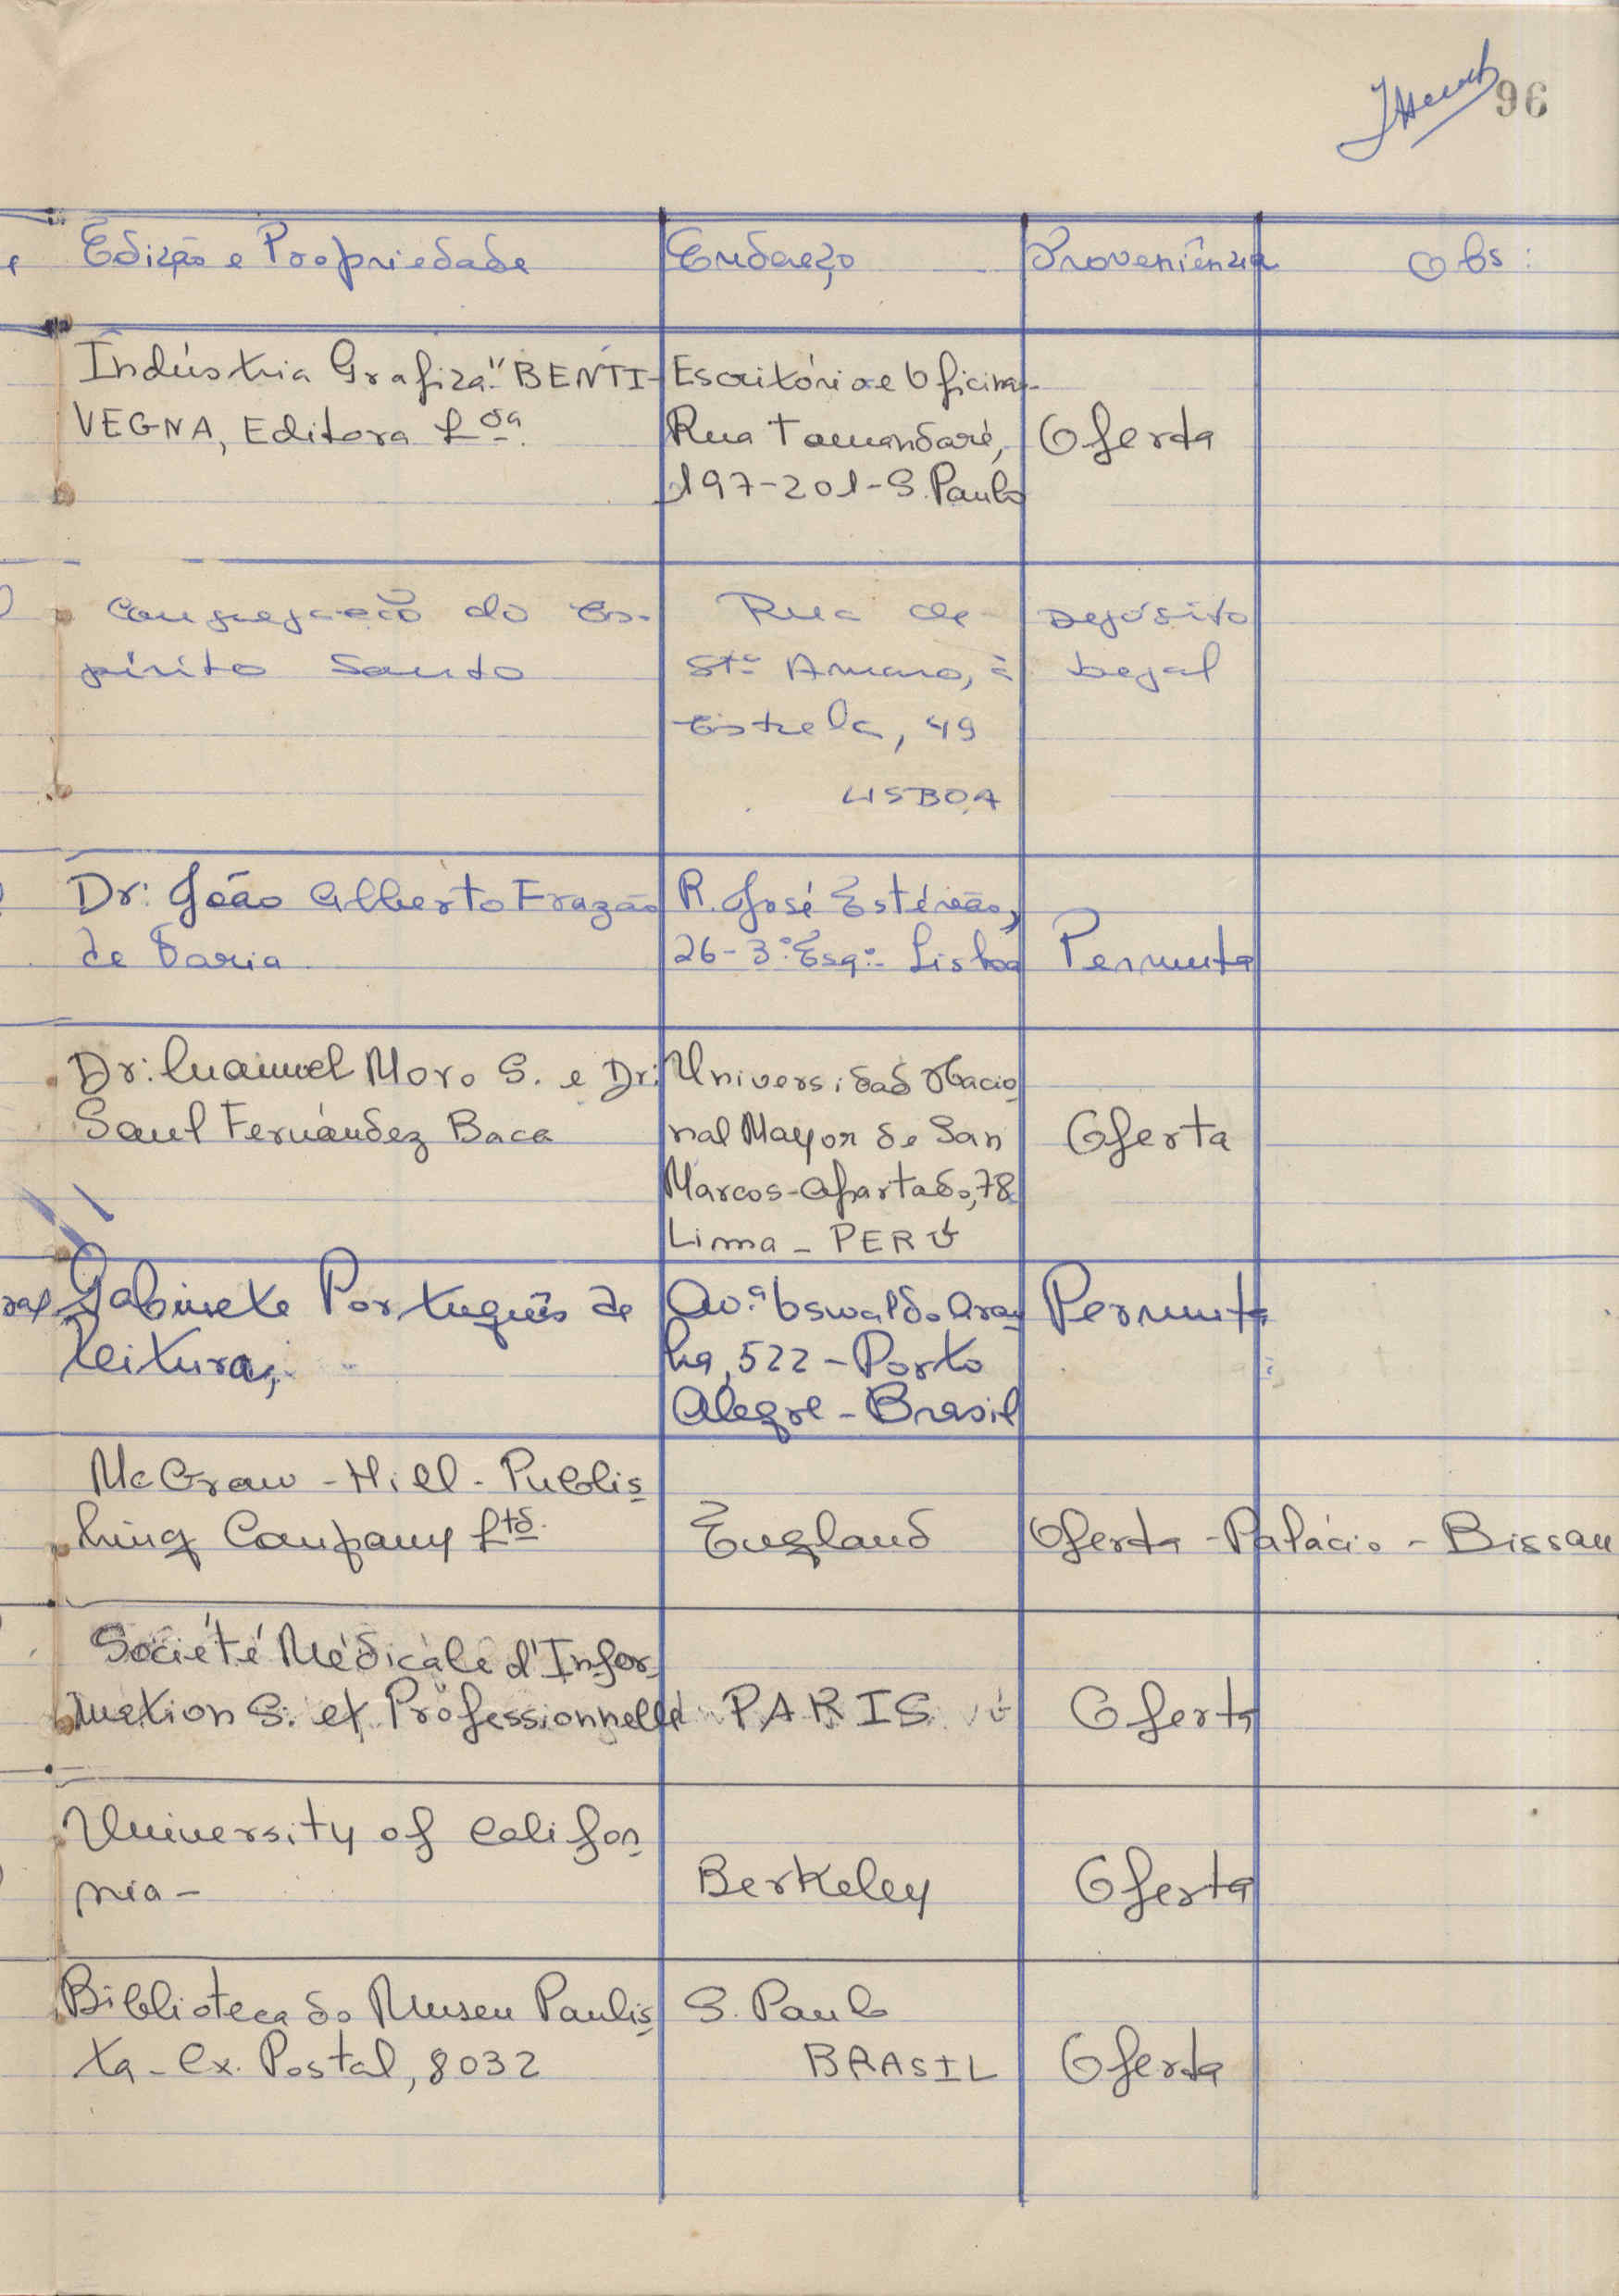 96
Edição e Propriedade Endereço Proveniência Obs:
Indústria Grafica "BENTI- Escritório e Oficina-
VEGNA, Editora Lda. Rua Tamandaré, Oferta
197-201-S. Paulo
Congregação do Es- Rua de Depósito
pírito Santo Stº Amaro, à Legal
Estrela, 49
LISBOA
Dr: João Alberto Frazão R. José Estêvão,
de Faria 26-3º Esqº- Lisboa Permuta
Dr: Manuel Moro S. e Dr: Universidad Nacio
Saul Fernández Baca nal Mayor de San Oferta
Marcos-Apartado, 78
Lima - PERÚ
Gabinete Português de Av.ª Oswaldo Ara Permuta
Leitura, nha, 522 - Porto
Alegre - Brasil
McGraw - Hill - Publis
hing Company Ltd. England Oferta - Palácio - Bissau
Société Médicale d'Infor
mation S. et Professionnelle PARIS Oferta
University of Califor
nia - Berkeley Oferta
Biblioteca do Museu Paulis S. Paulo
ta - Cx. Postal, 8032 BRASIL Oferta